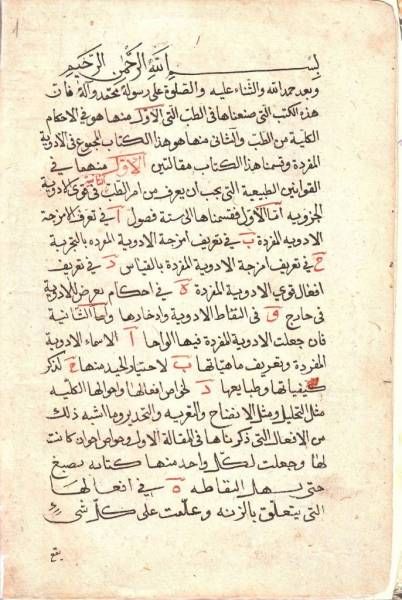 بسم الله الرحمن الرحيم
وبعد حمد الله والثناء عليه والصلوة على رسوله محمد وآله فان
هذه الكتب التي صنعناها في الطب التي الاول منها هو في الاحكام
الكلية من الطب والثاني منها هو هذا الكتاب المجموع في الادوية
المفردة وقسمنا هذا الكتاب مقالتين الاول منهما في
القوانين الطبيعية التي يجب ان يعرف من امر الطب في قوي الادوية
الجزويه أما الاول فقسمناها الى ستة فصول ا في تعرف الامزجة
الادويه المفردة ب في تعريف امزجة الادوية المفرده بالتجربة
ج في تعريف امزجة الادوية المفردة بالقياس د في تعريف
افعال قوي الادوية المفردة ه في احكام يعرض الادوية
في خارج و في التقاط الادوية وادخارها وأما الثانية
فان جعلت الادوية المفردة فيها الواحا ا الاسماء الادوية
المفردة وتعريف ماهياتها ب لاختيار الجيد منها ج لذكر
كيفياتها وطبايعها د لخواص افعالها واحوالها الكليه
مثل التحليل ومثل الانضاج والتغريه والتخدير وما اشبه ذلك
من الافعال التي ذكرناها في المقالة الاولى وخواص اخوان كانت
لها وجعلت لكل واحد منها كتابه بصبغ
حتى يسهل التقاطه ه في افعالها
التي يتعلق بالزنه وعلمت على كل شي
يقع